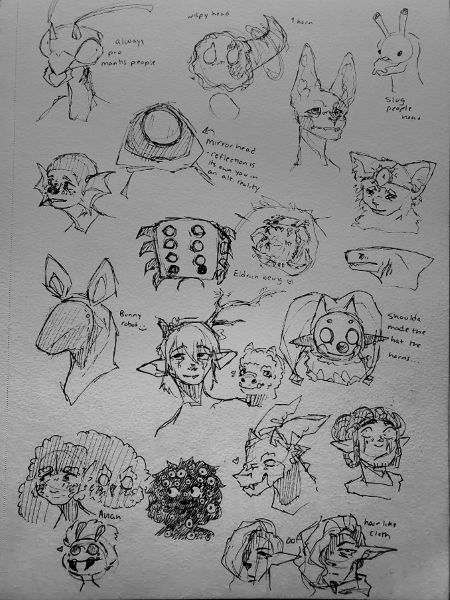 always
pro
mantis people
wispy head
1 horn
Slug
people
haha
Mirrorhead
-reflection is
its own you in
an alt reality
Eldrich being
Bunny
robot
Shoulda
made the
hat the
horns...
Avian
oof
hair like
cloth